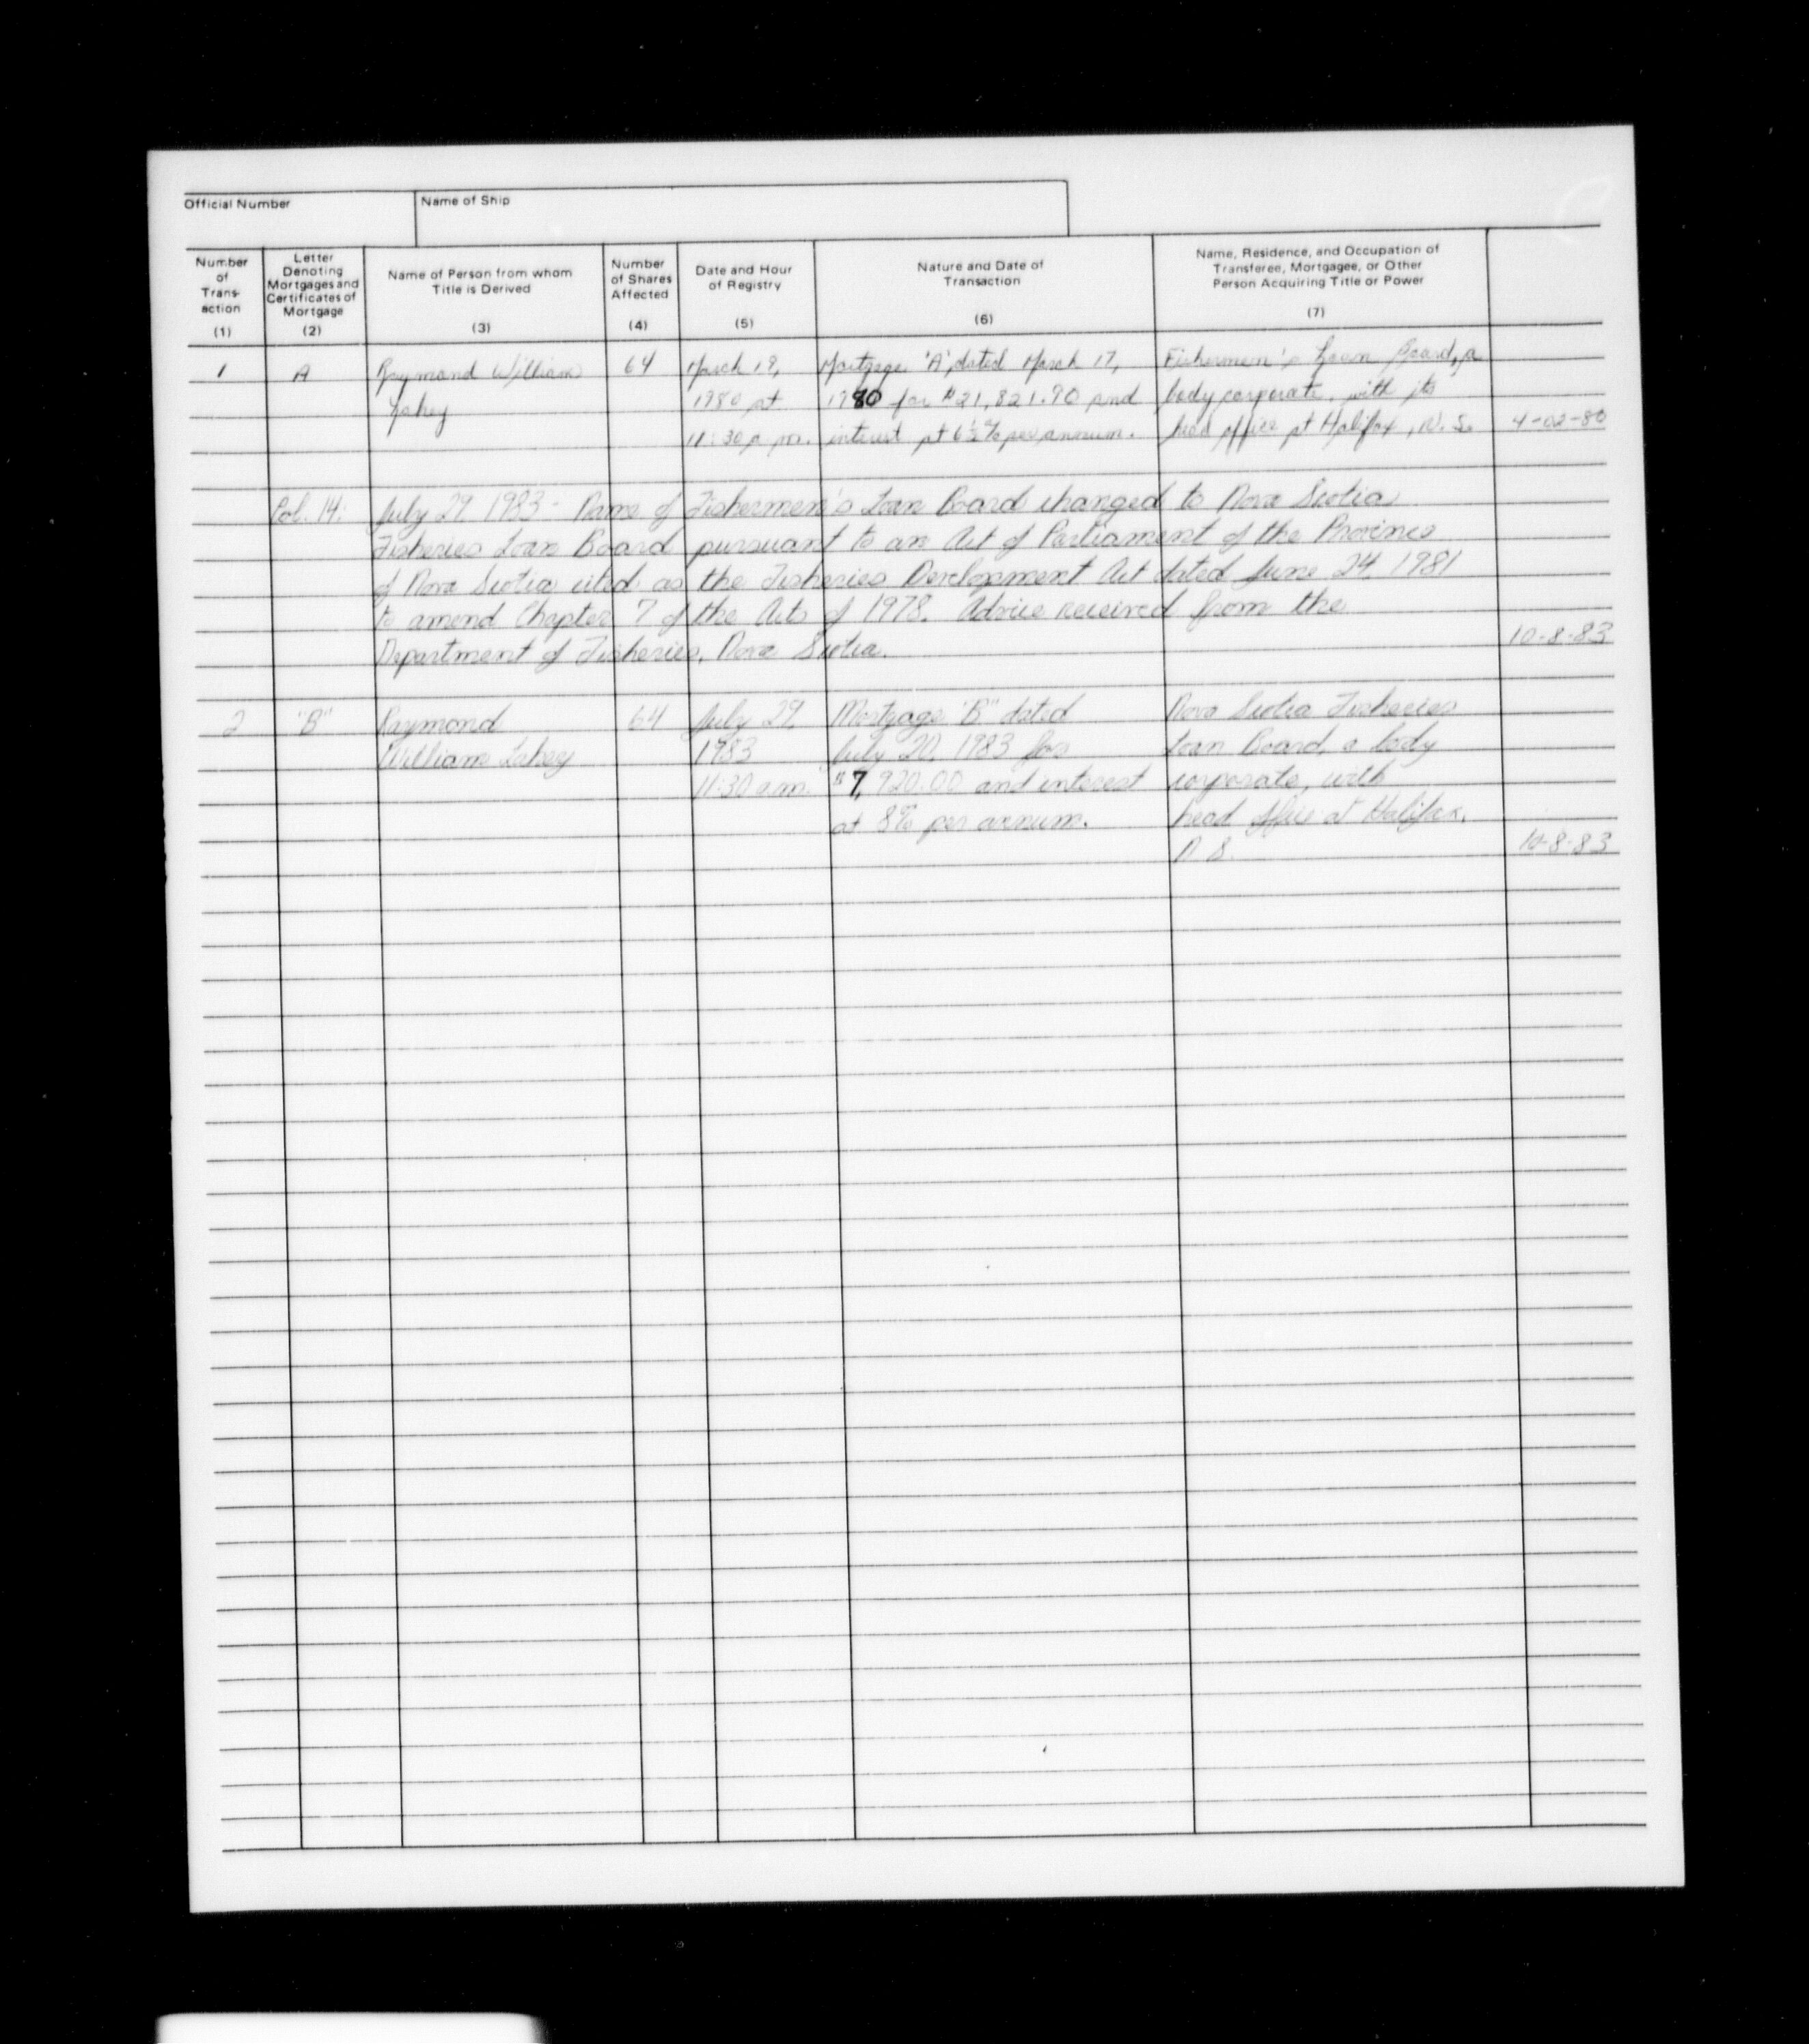 Official Number
Name of Ship
Number of Trans- action (1)
Letter Denoting Mortgages and Certificates of Mortgage (2)
Name of Person from whom Title is Derived (3)
Number of Shares Affected (4)
Date and Hour of Registry (5)
Nature and Date of Transaction (6)
Name, Residence, and Occupation of Transferee, Mortgagee, or Other Person Acquiring Title or Power (7)
1 A Raymond William 64 March 19, Mortgage "A", dated March 17, Fishermen's Loan Board, a
Lahey 1980 at 1980 for $21,821.90 and body corporate, with its
11:30 a.m. interest at 6½% per annum. head office at Halifax, N.S. 4-02-80
Col. 14: July 29, 1983 - Name of Fishermen's Loan Board changed to Nova Scotia
Fisheries Loan Board pursuant to an Act of Parliament of the Province
of Nova Scotia cited as the Fisheries Development Act dated June 24, 1981
to amend Chapter 7 of the Acts of 1978. Advice received from the
Department of Fisheries, Nova Scotia. 10-8-83
2 "B" Raymond 64 July 29, Mortgage "B" dated Nova Scotia Fisheries
William Lahey 1983 July 20, 1983 for Loan Board, a body
11:30 a.m. $7,920.00 and interest corporate, with
at 8% per annum. head office at Halifax,
N.S. 10-8-83